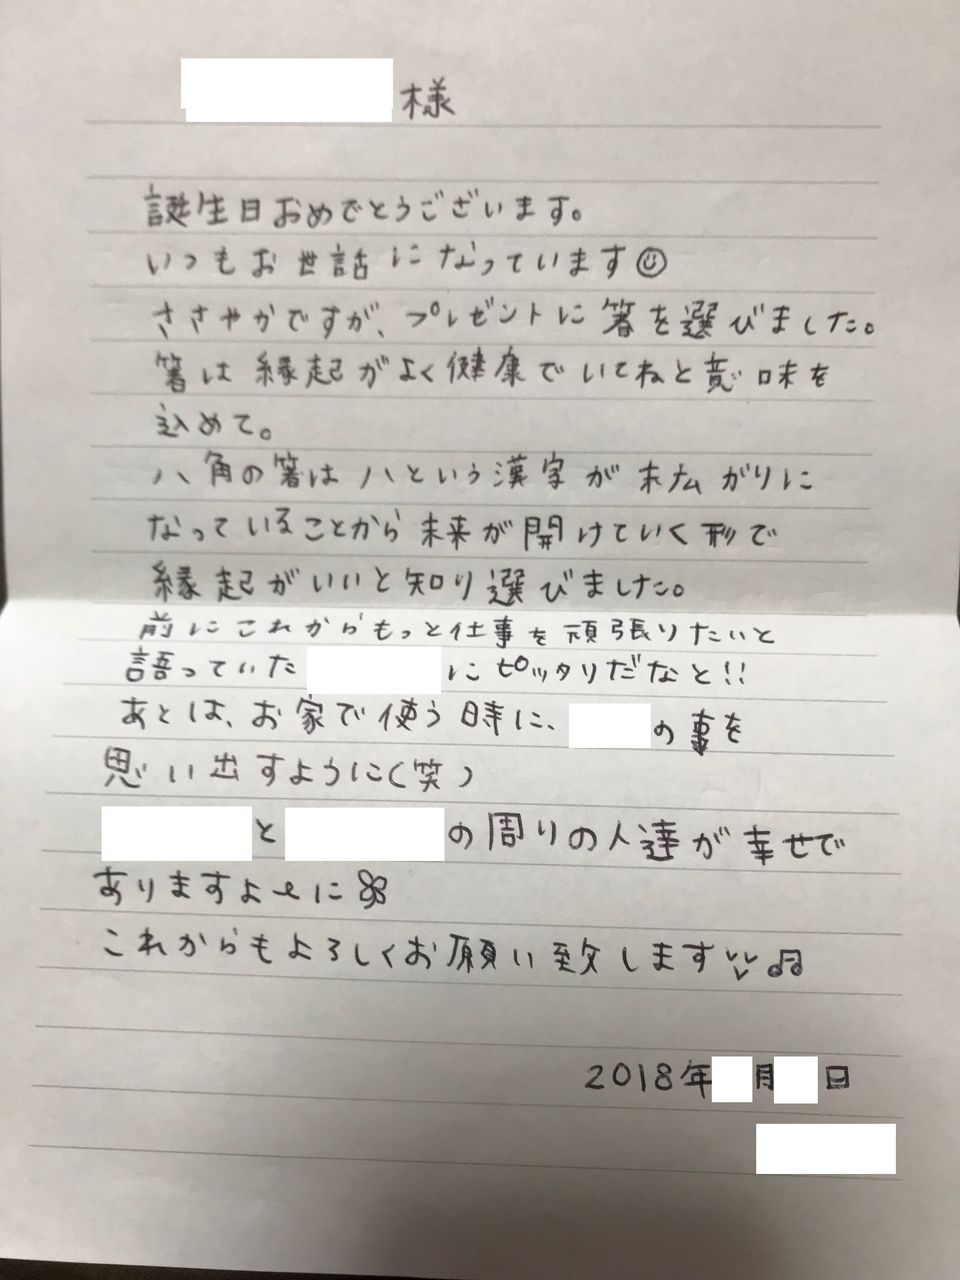 様
誕生日おめでとうございます。
いつもお世話になっています☺
ささやかですが、プレゼントに箸を選びました。
箸は縁起がよく健康でいてねと意味を
込めて。
八角の箸は八という漢字が末広がりに
なっていることから未来が開けていく形で
縁起がいいと知り選びました。
前にこれからもっと仕事を頑張りたいと
語っていた にピッタリだなと!!
あとは、お家で使う時に、 の事を
思い出すように(笑)
と の周りの人達が幸せで
ありますよーに
これからもよろしくお願い致します♫
2018年 月 日